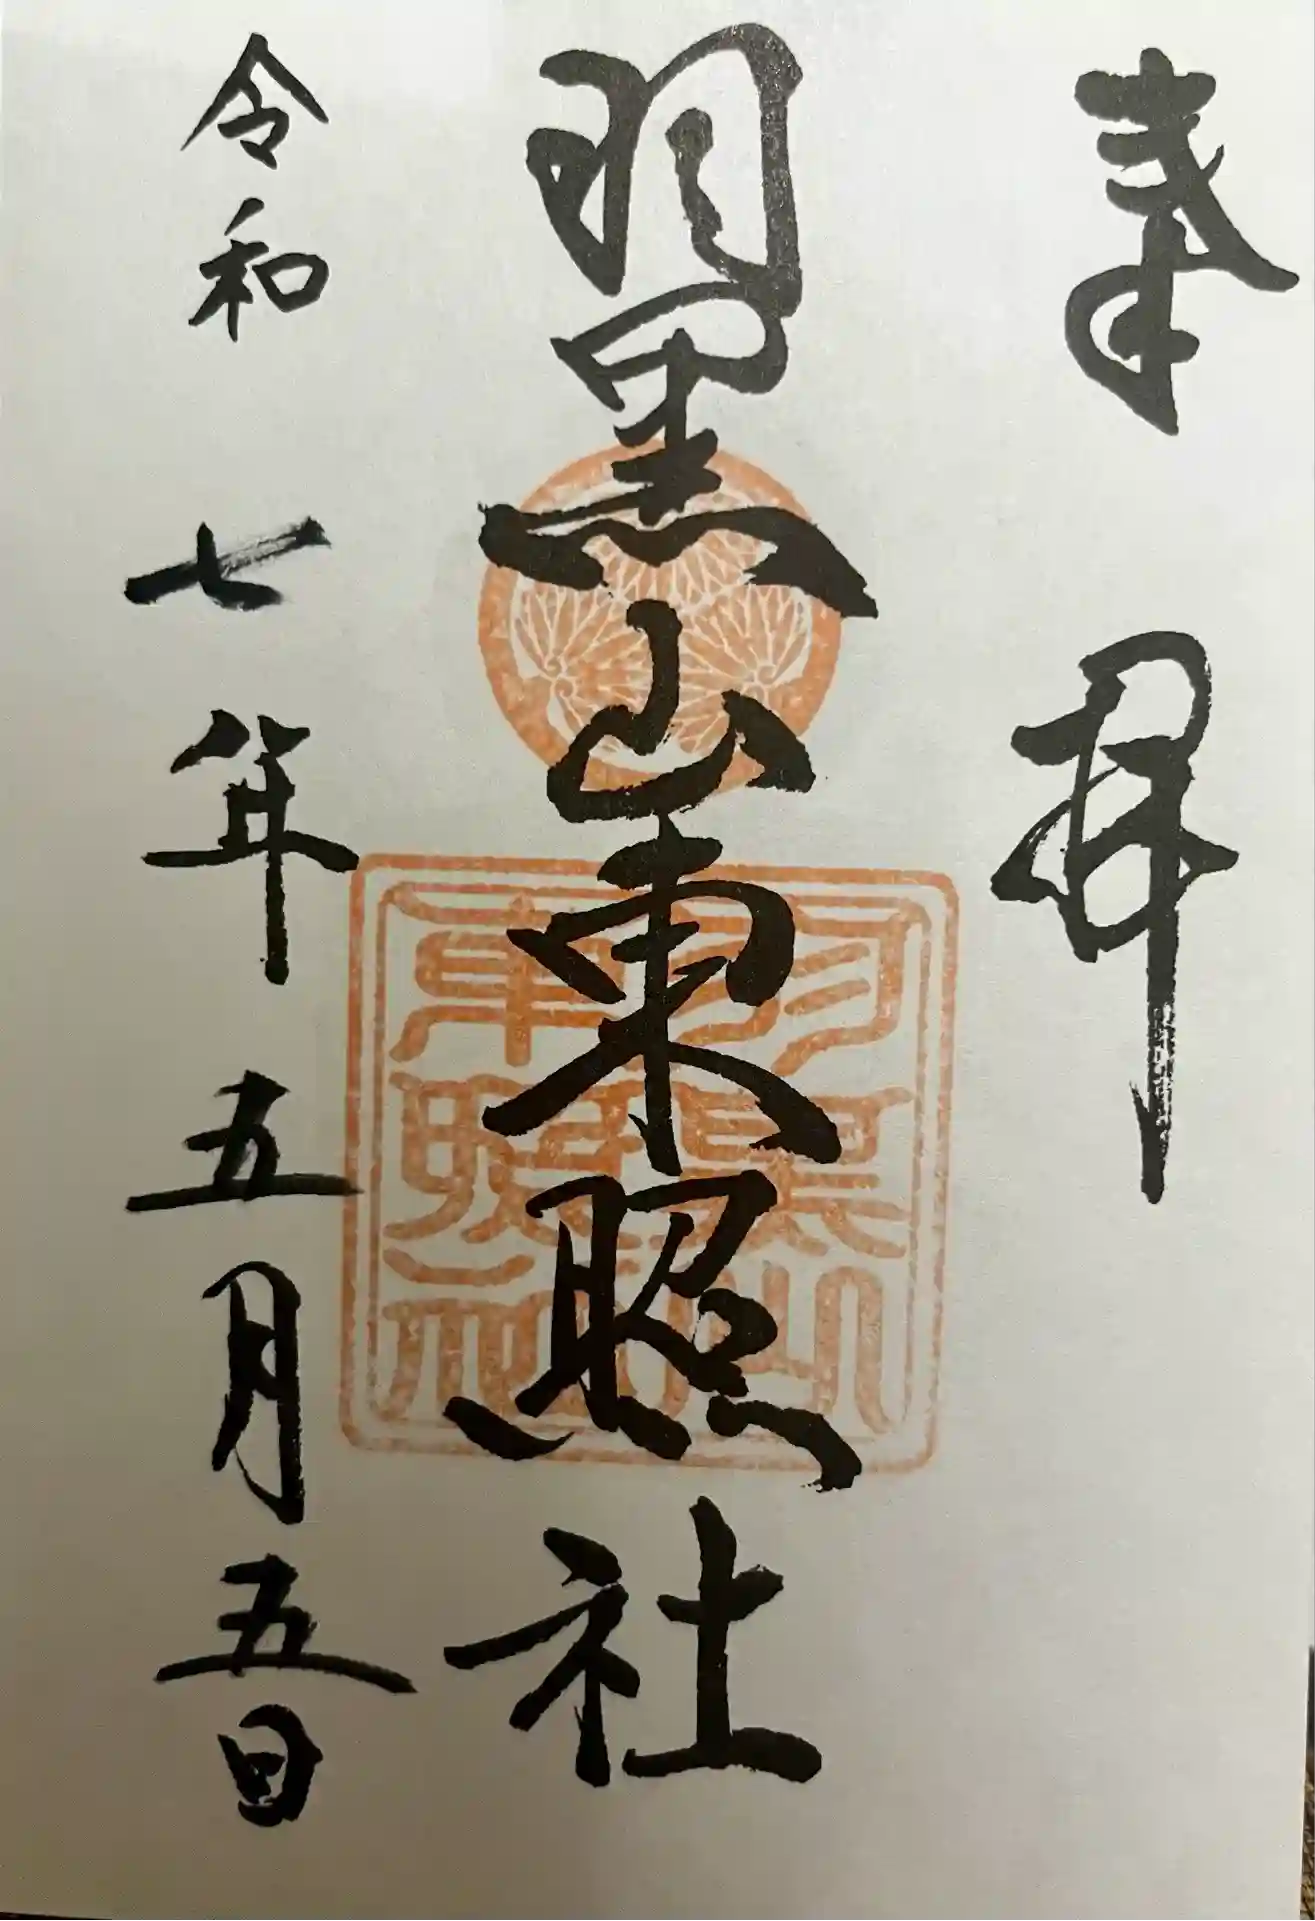 奉拝
羽黒山東照社
羽黒山
東照社
令和七年五月五日